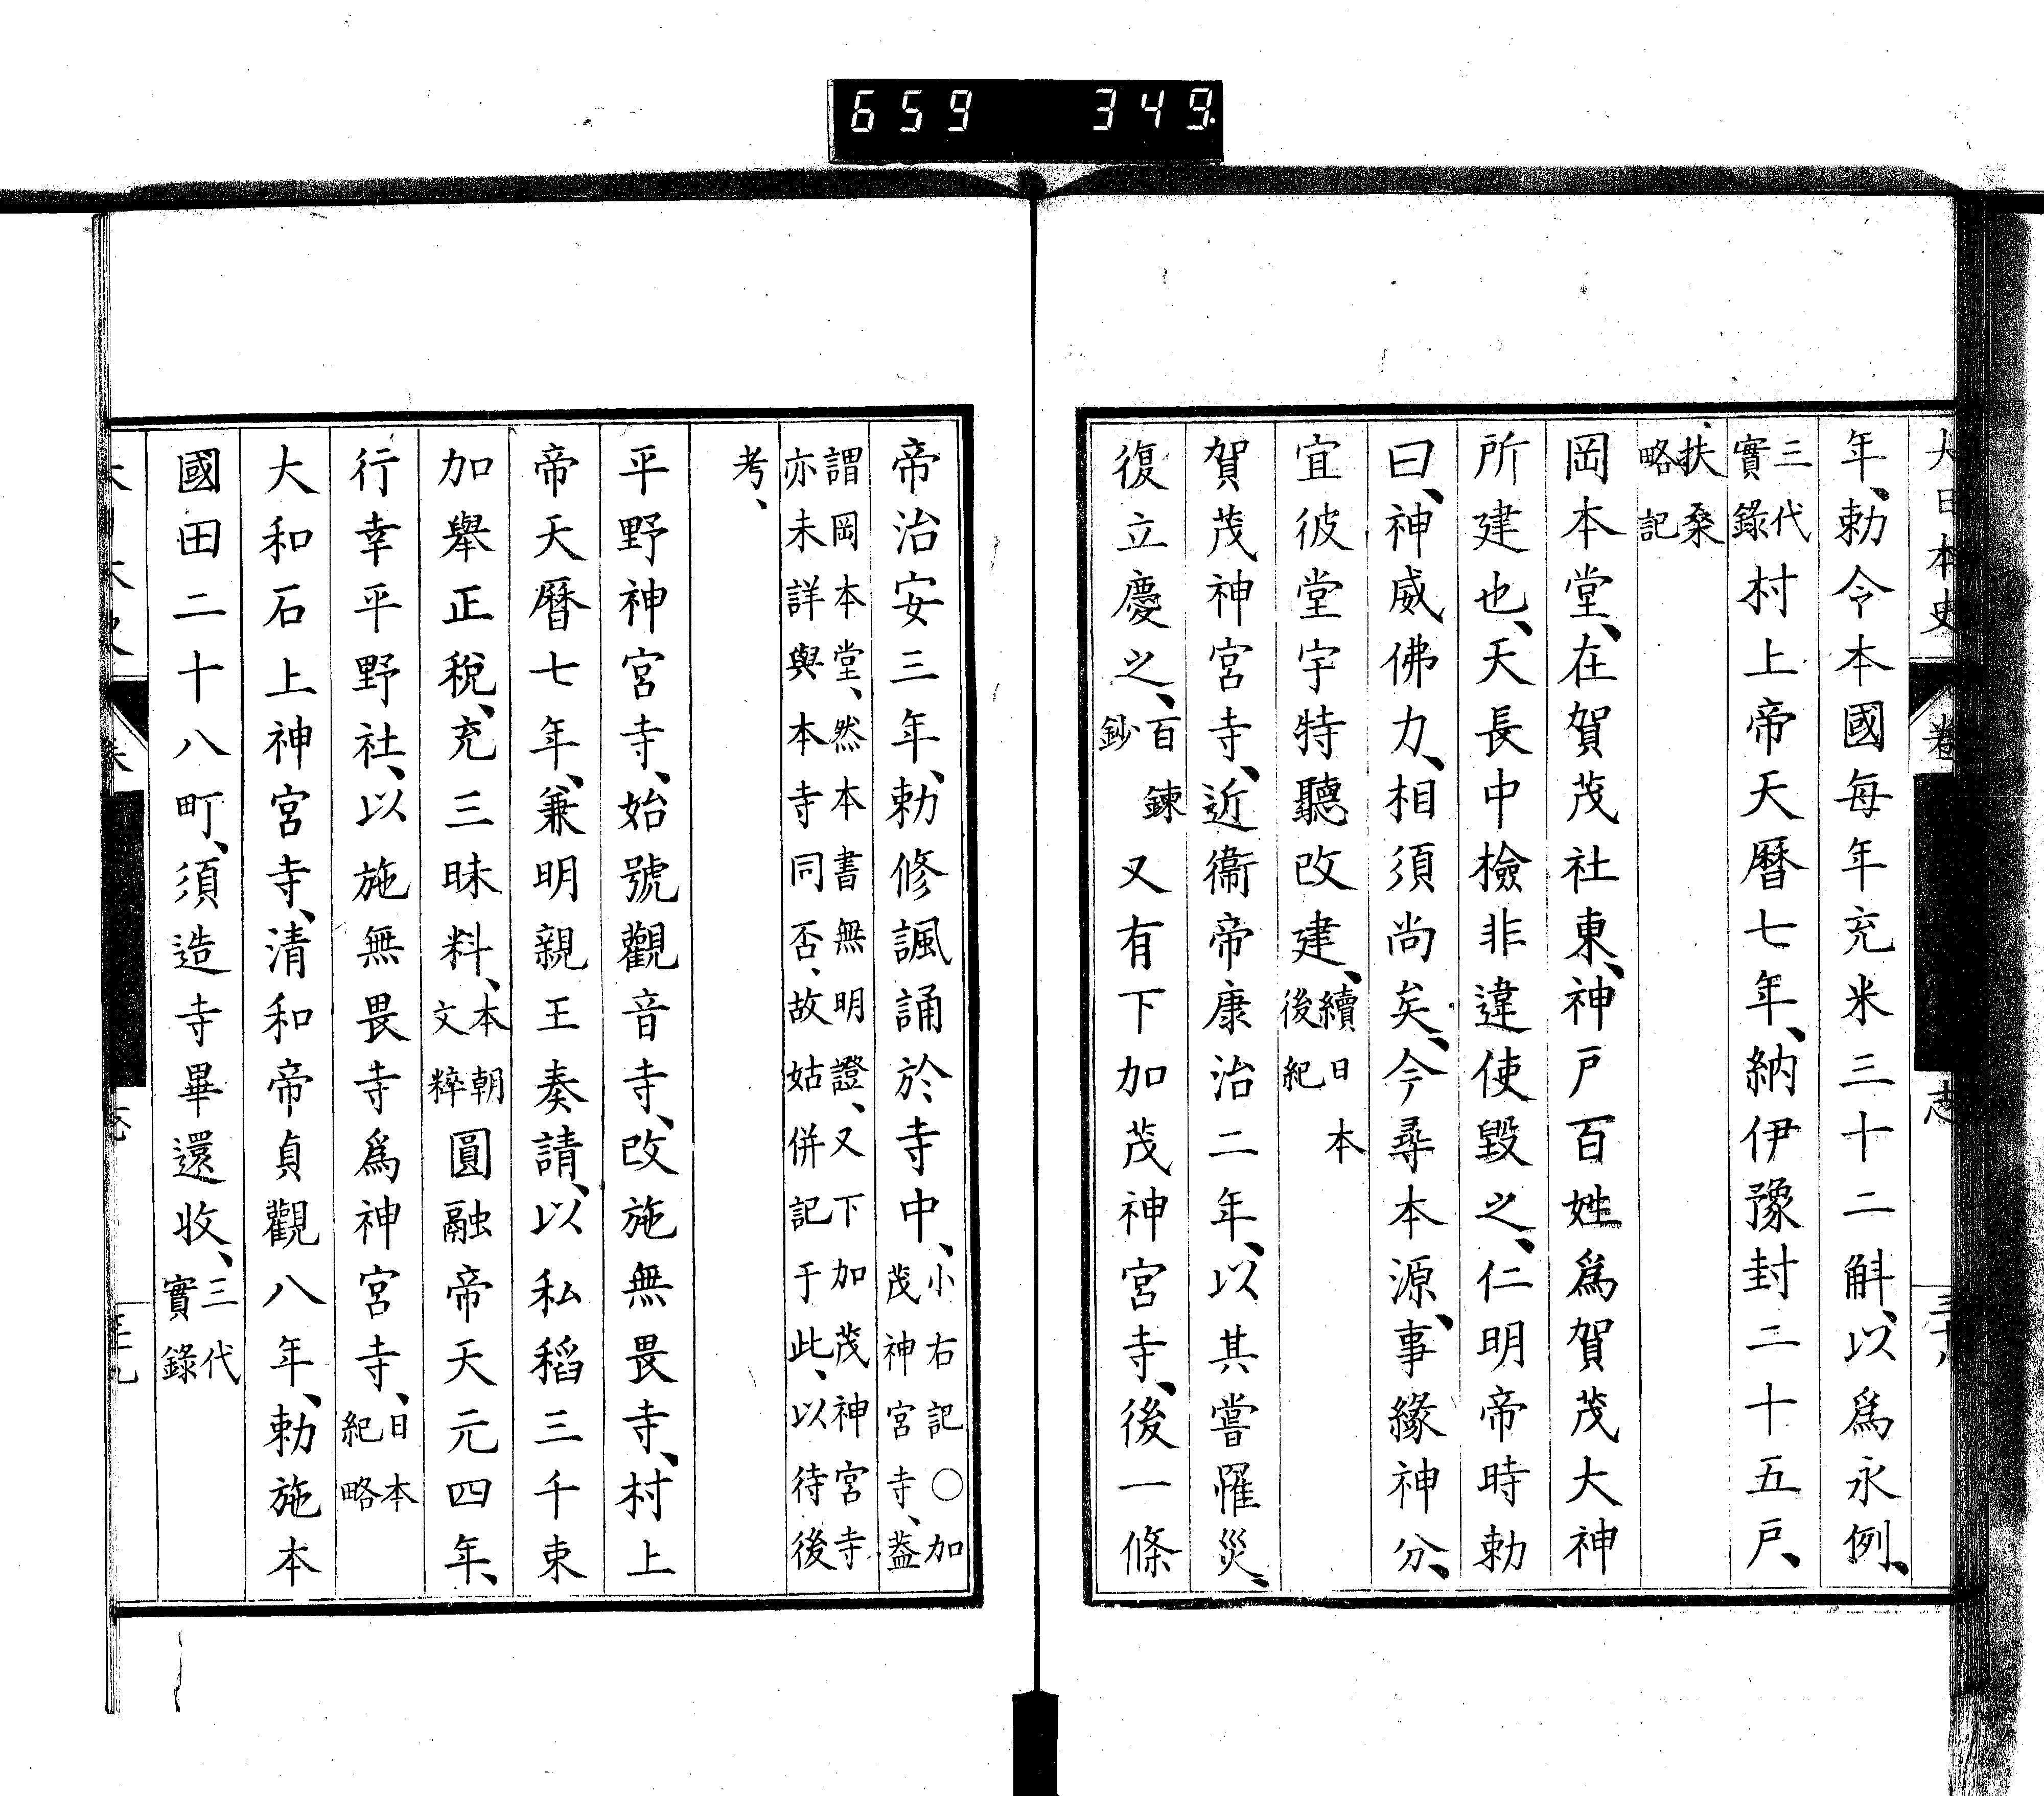 659 349
大日本史 卷 志 三十八
年、勅令本國每年充米三十二斛、以爲永例、
三代實錄村上帝天曆七年、納伊豫封二十五戶、
扶桑略記
岡本堂、在賀茂社東、神戶百姓爲賀茂大神
所建也、天長中檢非違使毀之、仁明帝時勅
曰、神威佛力、相須尚矣、今尋本源、事緣神分、
宜彼堂宇特聽改建、續日本後紀
賀茂神宮寺、近衞帝康治二年、以其嘗罹災、
復立慶之、百鍊鈔又有下加茂神宮寺、後一條
帝治安三年、勅修諷誦於寺中、小右記○加茂神宮寺、蓋
謂岡本堂、然本書無明證、又下加茂神宮寺亦未詳與本寺同否、故姑併記于此、以待後
考、
平野神宮寺、始號觀音寺、改施無畏寺、村上
帝天曆七年、兼明親王奏請、以私稻三千束
加舉正稅、充三昧料、本朝文粹圓融帝天元四年、
行幸平野社、以施無畏寺爲神宮寺、日本紀略
大和石上神宮寺、清和帝貞觀八年、勅施本
國田二十八町、須造寺畢還收、三代實錄